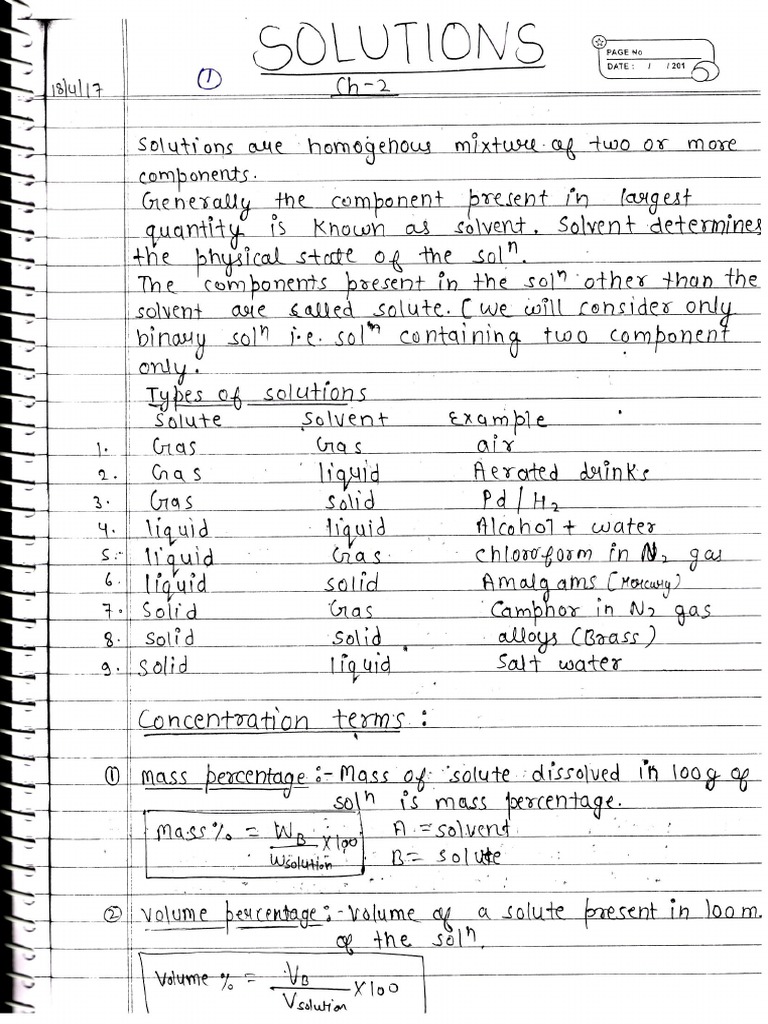 SOLUTIONS
PAGE No
DATE: / /201
18/4/17 ① Ch-2
Solutions are homogenous mixture of two or more
components.
Generally the component present in largest
quantity is known as solvent. Solvent determines
the physical state of the solⁿ.
The components present in the solⁿ other than the
solvent are called solute. (we will consider only
binary solⁿ i.e. solⁿ containing two component
only.
Types of solutions
Solute Solvent Example
1. Gas Gas air
2. Gas liquid Aerated drinks
3. Gas solid Pd/H₂
4. liquid liquid Alcohol + water
5. liquid Gas chloroform in N₂ gas
6. liquid solid Amalgams (Mercury)
7. Solid Gas Camphor in N₂ gas
8. Solid solid alloys (Brass)
9. Solid liquid Salt water
Concentration terms :
① mass percentage :- Mass of solute dissolved in 100g of
solⁿ is mass percentage.
Mass % = W_B / W_solution × 100 A = solvent
B = solute
② Volume percentage :- Volume of a solute present in 100 m
of the solⁿ.
Volume % = V_B / V_solution × 100